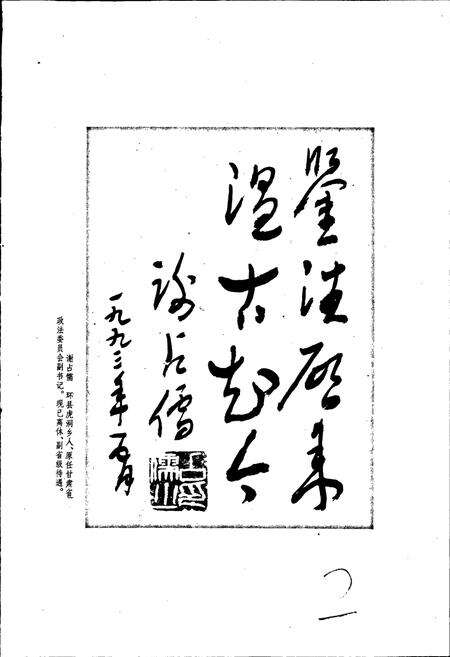 鉴往启来
温古知今
谢占儒
一九九三年一百月
谢占儒 环县虎洞乡人、原任甘肃省
政法委员会副书记。现已离休、副省级待遇。